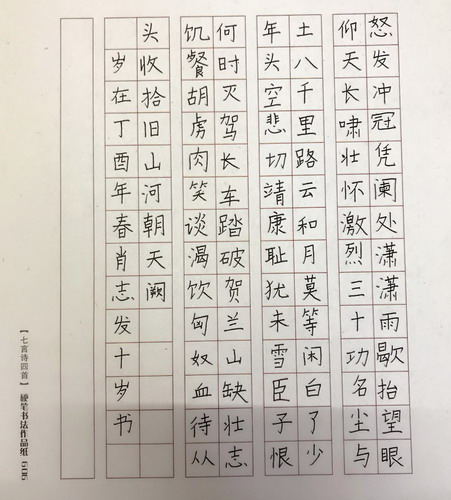 怒发冲冠凭阑处潇潇雨歇抬望眼
仰天长啸壮怀激烈三十功名尘与
土八千里路云和月莫等闲白了少
年头空悲切靖康耻犹未雪臣子恨
何时灭驾长车踏破贺兰山缺壮志
饥餐胡虏肉笑谈渴饮匈奴血待从
头收拾旧山河朝天阙
岁在丁酉年春肖志发十岁书
【七言诗四首】硬笔书法作品纸